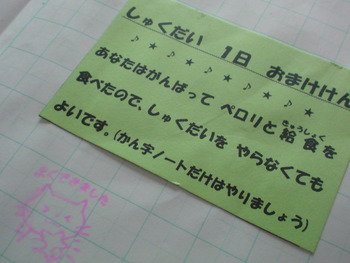 しゅくだい 1日 おまけけん
♪ ★ ♪ ★ ♪ ★ ♪ ★ ♪ ★
あなたはがんばって ペロリと給食を
きゅうしょく
食べたので、しゅくだいを やらなくても
よいです。(かん字ノートだけはやりましょう)
よくできました